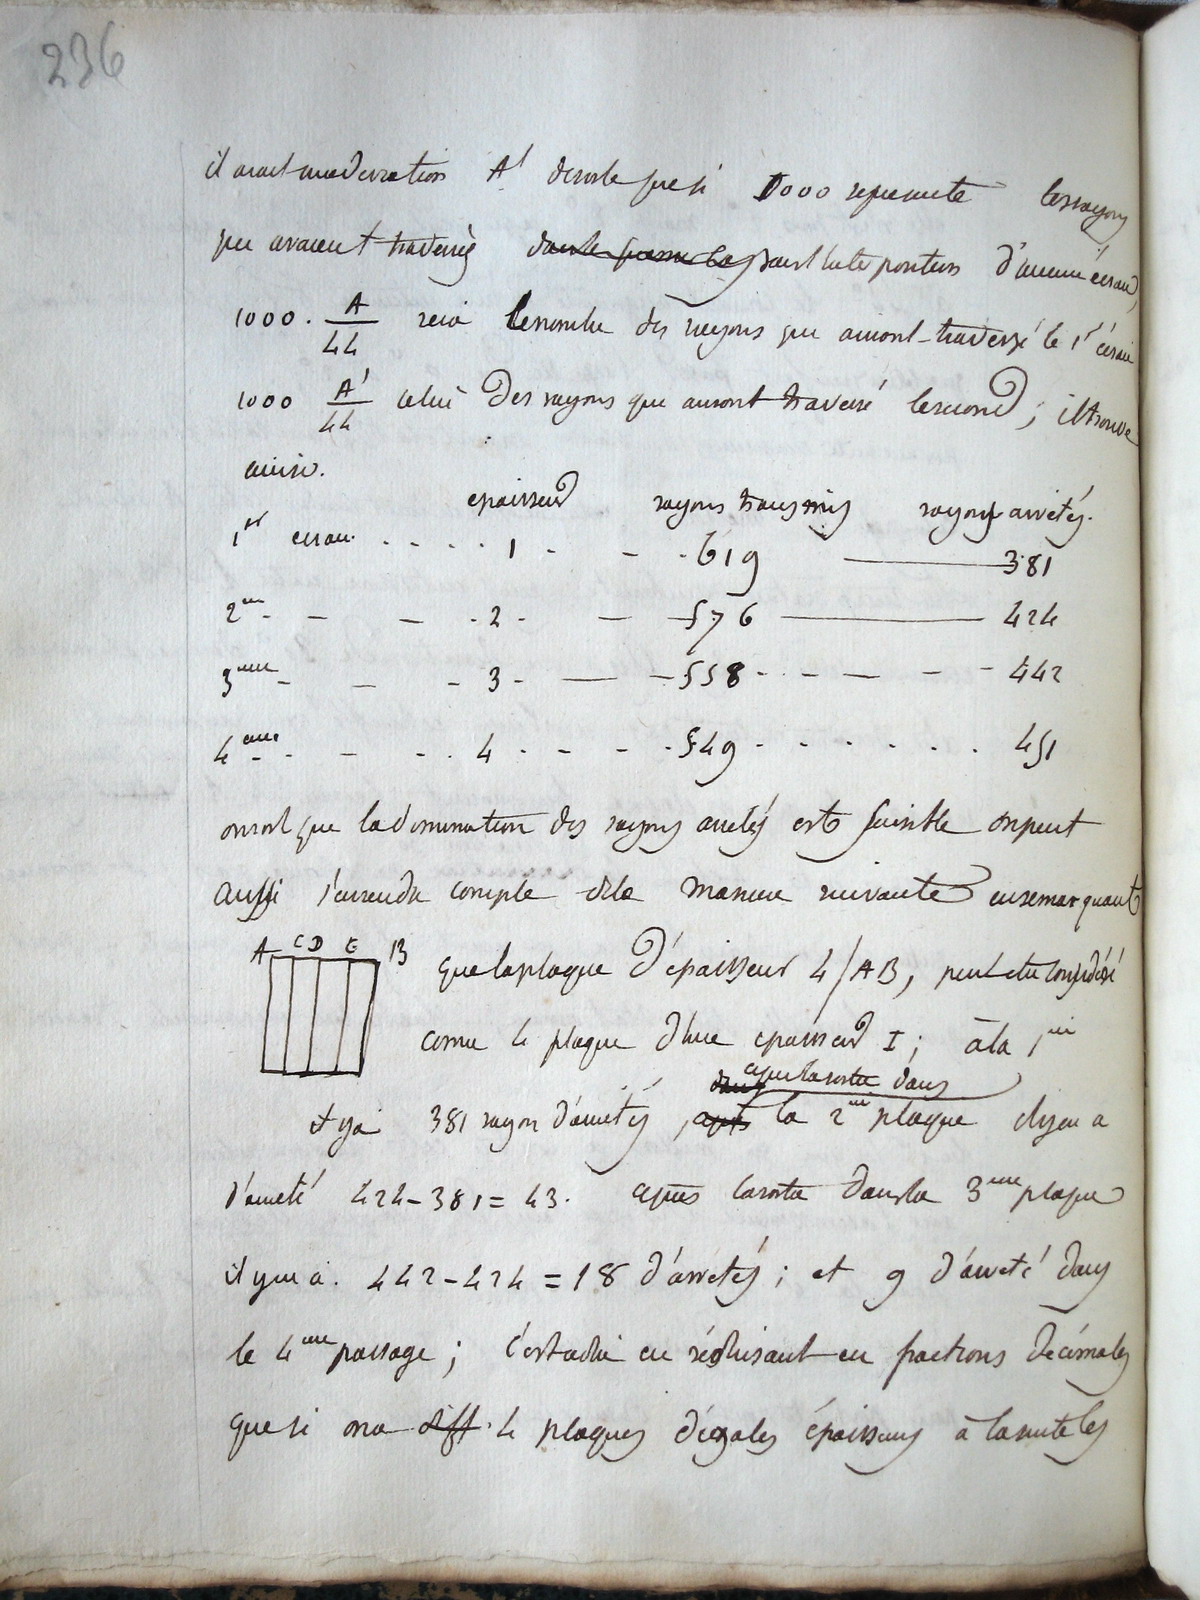 236
il avait une deviation A' de sorte que si 1000 represente les rayons
qui avaient traversés dans le sans l'interposition d'aucun écran,
1000 . A/44 sera le nombre des rayons qui auront traversé le 1er écran
1000 A'/44 celui des rayons qui auront traversé le second ; il trouve
ainsi.
epaisseur rayons transmis rayons arretés.
1er ecran . . . . 1 - - . 619 — 381
2me - - - . 2 . - — 576 — 424
3me - - - 3 - — — 558 - . - — - 442
4me - - - . . 4 . - - - . 549 - . . . . . 451
on voit que la diminution des rayons aretés est sensible on peut
aussi s'en rendre compte de la maniere suivante en remarquant
A C D E B
que la plaque d'épaisseur 4 / AB, peut etre considéré
come 4 plaque d'une epaisseur I ; à la 1ere
dans apres la sortie dans
il y a 381 rayon d'arretés , apres la 2me plaque il y en a
d'arreté 424 - 381 = 43. apres la sortie dans la 3me plaque
il y en a . 442 - 424 = 18 d'arretés ; et 9 d'arreté dans
le 4me passage ; c'est a dire en réduisant en fractions décimales
que si on a diff. 4 plaques d'égales épaisseurs à la suite les